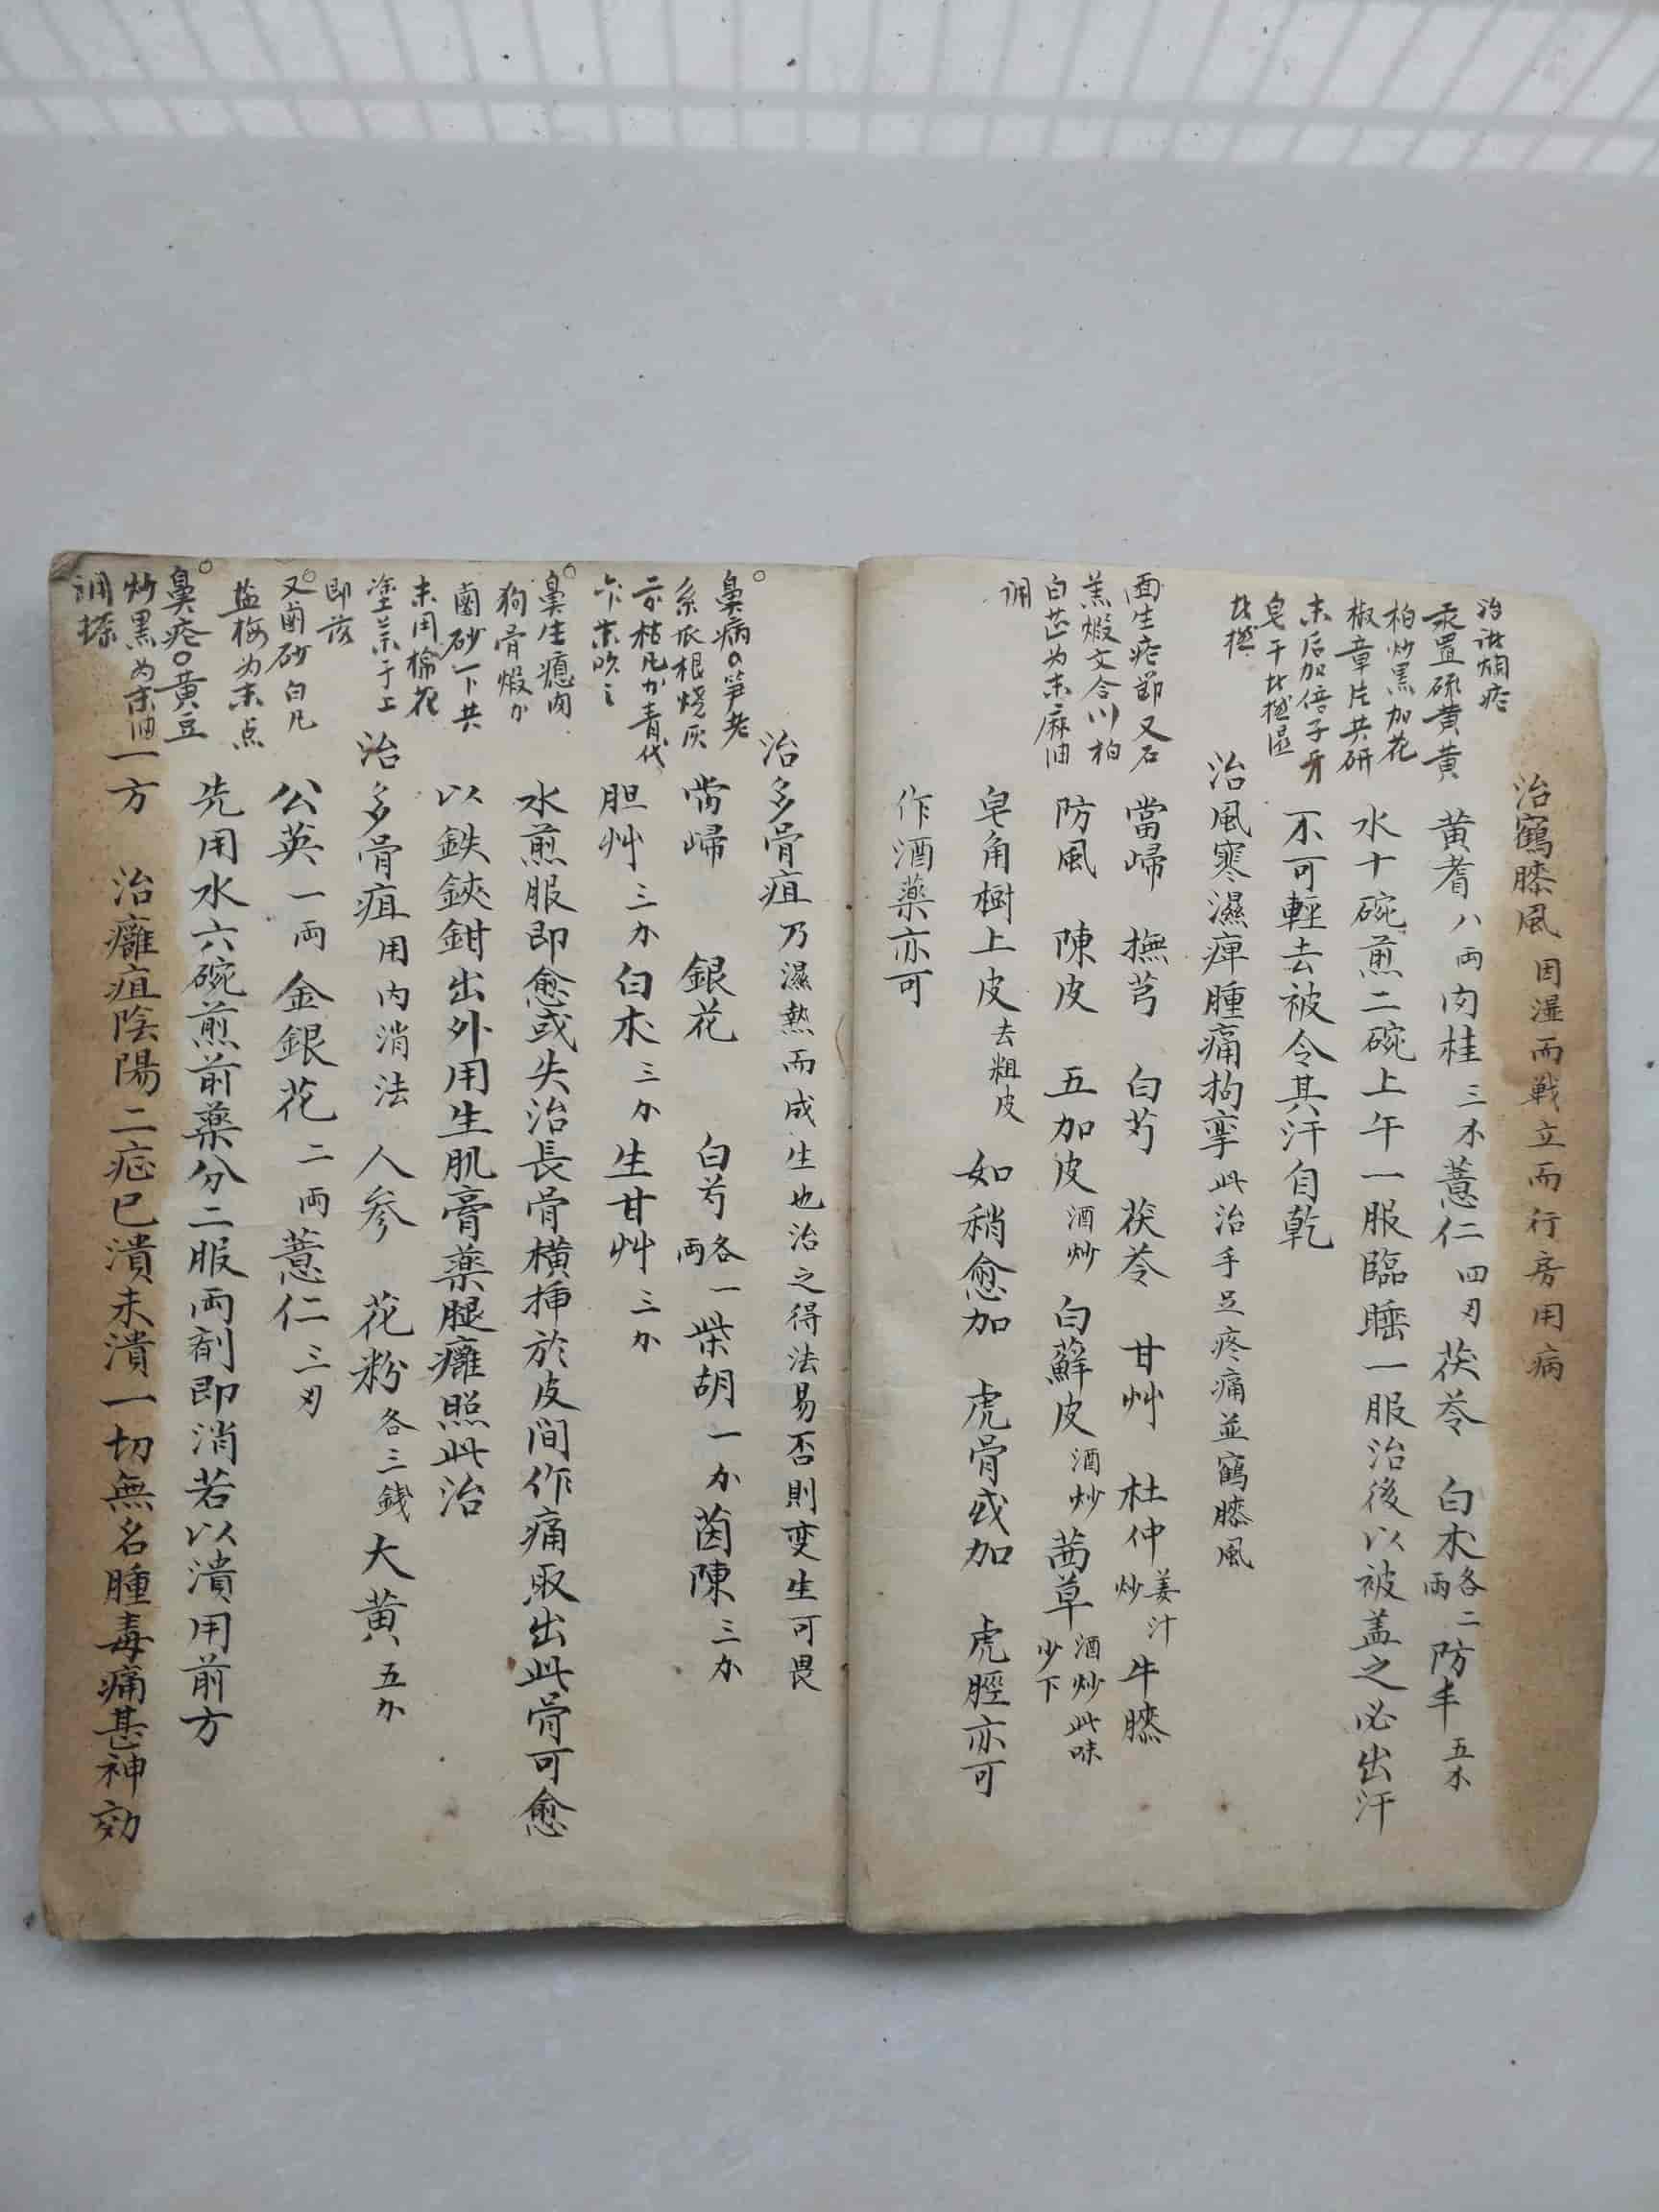 治鶴膝風 因湿而戦立而行房用病
黄耆八両肉桂三 薏仁四 茯苓 白朮各二両防 五
水十碗煎二碗上午一服臨睡一服治後以被盖之必出汗
不可輕去被令其汗自乾
治風寒濕痺腫痛拘挛此治手足疼痛並鶴膝風
當歸 撫芎 白芍 茯苓 甘艸 杜仲姜汁炒 牛膝
防風 陳皮 五加皮酒炒 白蘚皮酒炒 茜草酒炒此味少下
皂角樹上皮去粗皮 如稍愈加 虎骨或加 虎脛亦可
作酒藥亦可
汞置硫黄黄
柏炒黑加花
椒章片共研
末后加倍子牙
皂干
面生疮節又石
羔煅文合川柏
白芷为末麻油
调
治多骨疽乃濕熱而成生也治之得法易否則变生可畏
當歸 銀花 白芍各一両 柴胡一 茵陳三
胆艸三 白朮三 生甘艸三
水煎服即愈或失治長骨橫插於皮间作痛取出此骨可愈
以鉄鋏鉗出外用生肌膏藥腿癰照此治
治多骨疽用内消法 人参 花粉各三銭大黄五
公英一両金銀花二両薏仁三
先用水六碗煎前藥分二服両剤即消若以潰用前方
一方 治癰疽陰陽二症已潰未潰一切無名腫毒痛甚神効
鼻病
糸瓜根烧灰
枯凡 青代
末吹之
鼻生瘜肉
狗骨煅
鹵砂一下共
末用棉花
塗末于上
即落
又鹵砂白凡
盐梅为末点
鼻疮黄豆
炒黑为末油
调搽